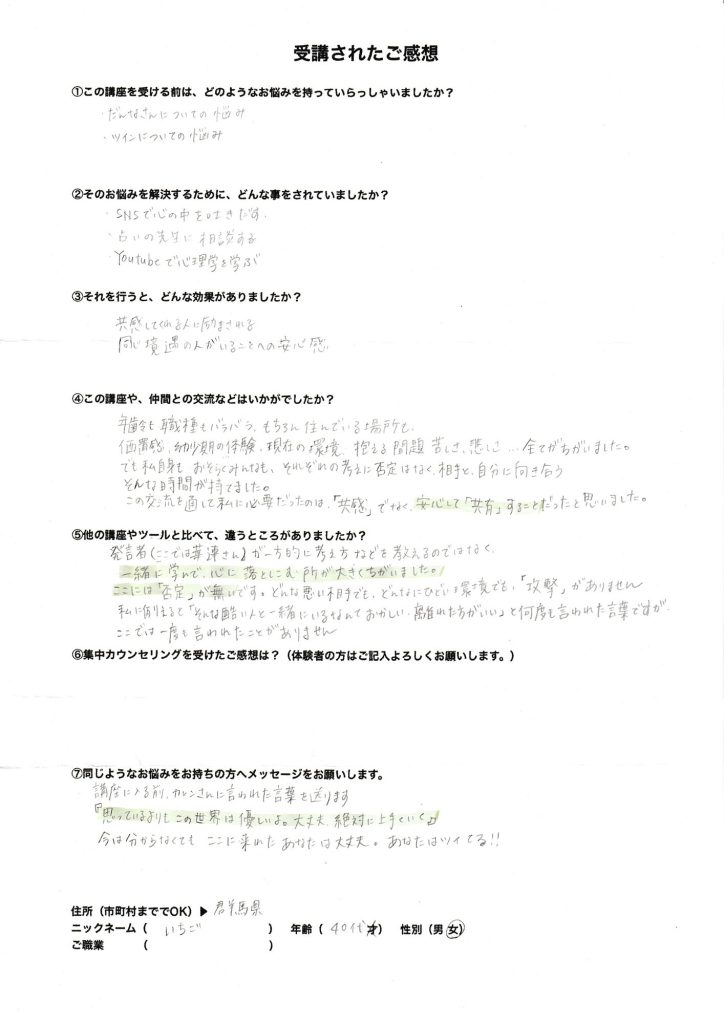 受講されたご感想
①この講座を受ける前は、どのようなお悩みを持っていらっしゃいましたか？
・だんなさんについての悩み
・ツインについての悩み
②そのお悩みを解決するために、どんな事をされていましたか？
・SNSで心の中を吐きだす.
・占いの先生に相談する
・Youtubeで心理学を学ぶ
③それを行うと、どんな効果がありましたか？
共感してくれる人に励まされる
同じ境遇の人がいることへの安心感.
④この講座や、仲間との交流などはいかがでしたか？
年齢も職種もバラバラ、もちろん住んでいる場所も、
価値感、幼少期の体験、現在の環境、抱える問題 苦しさ、悲しさ…全てがちがいました。
でも私自身も おそらくみんなも、それぞれの考えに否定はなく、相手と、自分に向き合う
そんな時間が持てました。
この交流を通して私に必要だったのは、「共感」でなく、安心して「共有」することだったと思いました。
⑤他の講座やツールと比べて、違うところがありましたか？
発言者(ここでは華蓮さん)が一方的に考え方などを教えるのではなく、
一緒に学んで、心に落としこむ所が大きくちがいました。
ここには「否定」が無いです。どんな悪い相手でも、どんなにひどい環境でも、「攻撃」がありません
私に例えると「そんな酷い人と一緒にいるなんておかしい、離れた方がいい」と何度も言われた言葉ですが、
ここでは一度も言われたことがありません
⑥集中カウンセリングを受けたご感想は？（体験者の方はご記入よろしくお願いします。）
⑦同じようなお悩みをお持ちの方へメッセージをお願いします。
講座に入る前、カレンさんに言われた言葉を送ります
『思っているよりもこの世界は優しいよ。大丈夫、絶対に上手くいく』
今は分からなくても ここに来れたあなたは大丈夫。あなたはツイてる!!
住所（市町村まででOK）▶ 群馬県
ニックネーム（ いちご ） 年齢（ 40代 才） 性別（男 女）
ご職業 （ ）